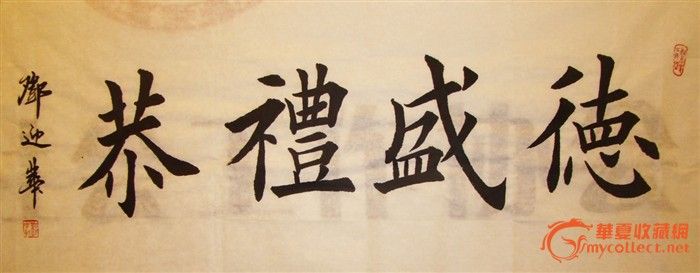 德盛禮恭
鄧迎華
華夏收藏網
mycollect.net